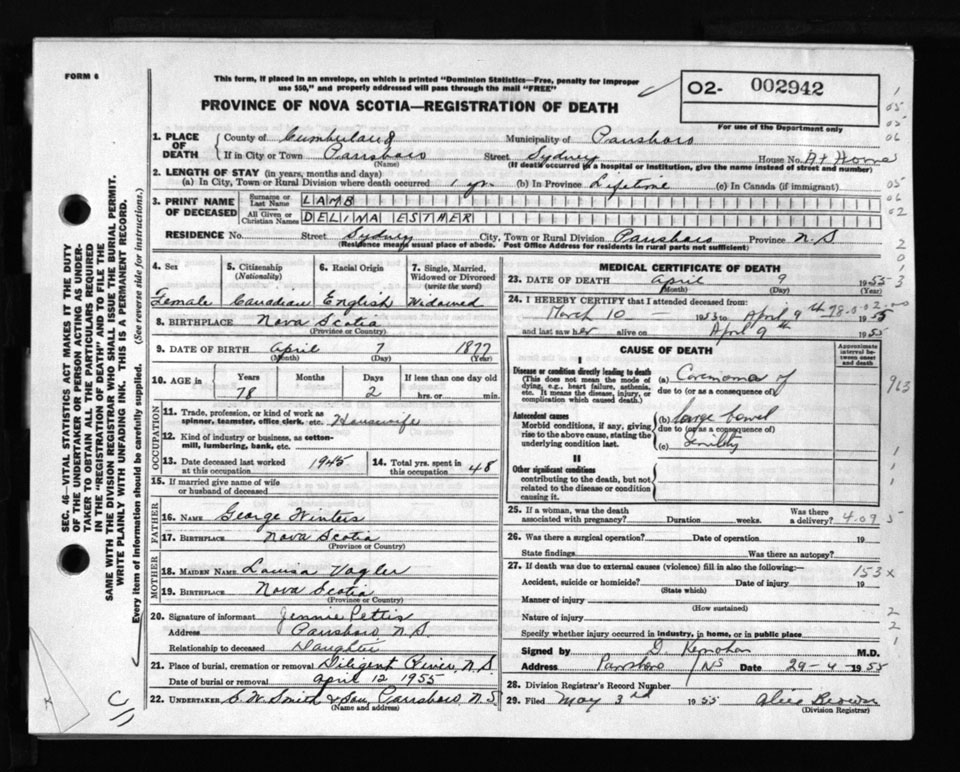 FORM 6
This form, if placed in an envelope, on which is printed "Dominion Statistics—Free, penalty for improper
use $50," and properly addressed will pass through the mail "FREE"
O2- 002942
PROVINCE OF NOVA SCOTIA—REGISTRATION OF DEATH
For use of the Department only
1. PLACE OF DEATH
County of Cumberland Municipality of Parrsboro
If in City or Town Parrsboro Street Sydney House No. At Home
(Name) (If death occurred in a hospital or institution, give the name instead of street and number)
2. LENGTH OF STAY (in years, months and days)
(a) In City, Town or Rural Division where death occurred 1 yr. (b) In Province Lifetime (c) In Canada (if immigrant)
3. PRINT NAME OF DECEASED
Surname or Last Name LAMB
All Given or Christian Names DELINA ESTHER
RESIDENCE No. Street Sydney City, Town or Rural Division Parrsboro Province N.S
(Residence means usual place of abode. Post Office Address for residents in rural parts not sufficient)
4. Sex 5. Citizenship (Nationality) 6. Racial Origin 7. Single, Married, Widowed or Divorced (write the word)
Female Canadian English Widowed
8. BIRTHPLACE Nova Scotia
(Province or Country)
9. DATE OF BIRTH April 7 1877
(Month) (Day) (Year)
10. AGE in Years Months Days If less than one day old
78 2 hrs. or min.
OCCUPATION
11. Trade, profession, or kind of work as spinner, teamster, office clerk. etc. Housewife
12. Kind of industry or business, as cotton-mill, lumbering, bank, etc.
13. Date deceased last worked at this occupation 1945 14. Total yrs. spent in this occupation 48
15. If married give name of wife or husband of deceased
FATHER
16. NAME George Winters
17. BIRTHPLACE Nova Scotia
(Province or Country)
MOTHER
18. MAIDEN NAME Louisa Vogler
19. BIRTHPLACE Nova Scotia
(Province or Country)
20. Signature of informant Jennie Pettis
Address Parrsboro N.S.
Relationship to deceased Daughter
21. Place of burial, cremation or removal Diligent River, N.S
Date of burial or removal April 12 1955
22. UNDERTAKER C.W. Smith & Son, Parrsboro, N.S
(Name and address)
MEDICAL CERTIFICATE OF DEATH
23. DATE OF DEATH April 9 1955
(Month) (Day) (Year)
24. I HEREBY CERTIFY that I attended deceased from:
March 10 1953 to April 9th 1955
and last saw her alive on April 9th 1955
CAUSE OF DEATH
Approximate interval between onset and death
I
Disease or condition directly leading to death
(This does not mean the mode of dying, e.g., heart failure, asthenia, etc. It means the disease, injury, or complication which caused death.)
(a) Carcinoma of
due to (or as a consequence of)
Antecedent causes
Morbid conditions, if any, giving rise to the above cause, stating the underlying condition last.
(b) large bowel
due to (or as a consequence of)
(c) Senility
II
Other significant conditions
contributing to the death, but not related to the disease or condition causing it.
25. If a woman, was the death associated with pregnancy? Duration weeks. Was there a delivery? 4.09
26. Was there a surgical operation? Date of operation 19
State findings Was there an autopsy?
27. If death was due to external causes (violence) fill in also the following:— 153x
Accident, suicide or homicide? Date of injury 19
(State which)
Manner of injury
(How sustained)
Nature of injury
Specify whether injury occurred in industry, in home, or in public place
Signed by D. Kernohan M.D.
Address Parrsboro NS Date 29-4-1955
28. Division Registrar's Record Number
29. Filed May 3rd 1955 Alice Brown
(Division Registrar)
SEC. 46—VITAL STATISTICS ACT MAKES IT THE DUTY
OF THE UNDERTAKER OR PERSON ACTING AS UNDER-
TAKER TO OBTAIN ALL THE PARTICULARS REQUIRED
IN THE "REGISTRATION OF DEATH" AND TO FILE THE
SAME WITH THE DIVISION REGISTRAR WHO SHALL ISSUE THE BURIAL PERMIT.
WRITE PLAINLY WITH UNFADING INK. THIS IS A PERMANENT RECORD.
Every item of information should be carefully supplied. (See reverse side for instructions.)